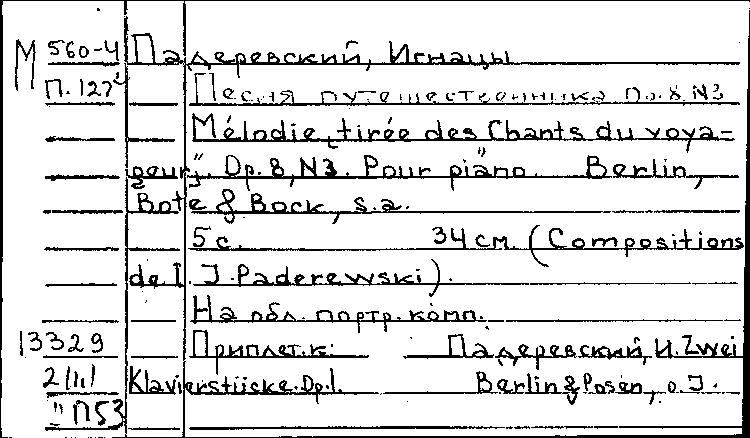 М 560-4 Падеревский, Игнацы
П. 127² Песня путешественника Op. 8, N3
Mélodie, tirée des Chants du voya=
geur". Op. 8, N3. Pour piano. Berlin,
Bote & Bock, s.a.
5 с. 34 см. (Compositions
de I. J. Paderewski).
На обл. портр. комп.
13329 Приплет. к: Падеревский, И. Zwei
Klavierstücke. Op. 1. Berlin & Posen, o. J.
П53